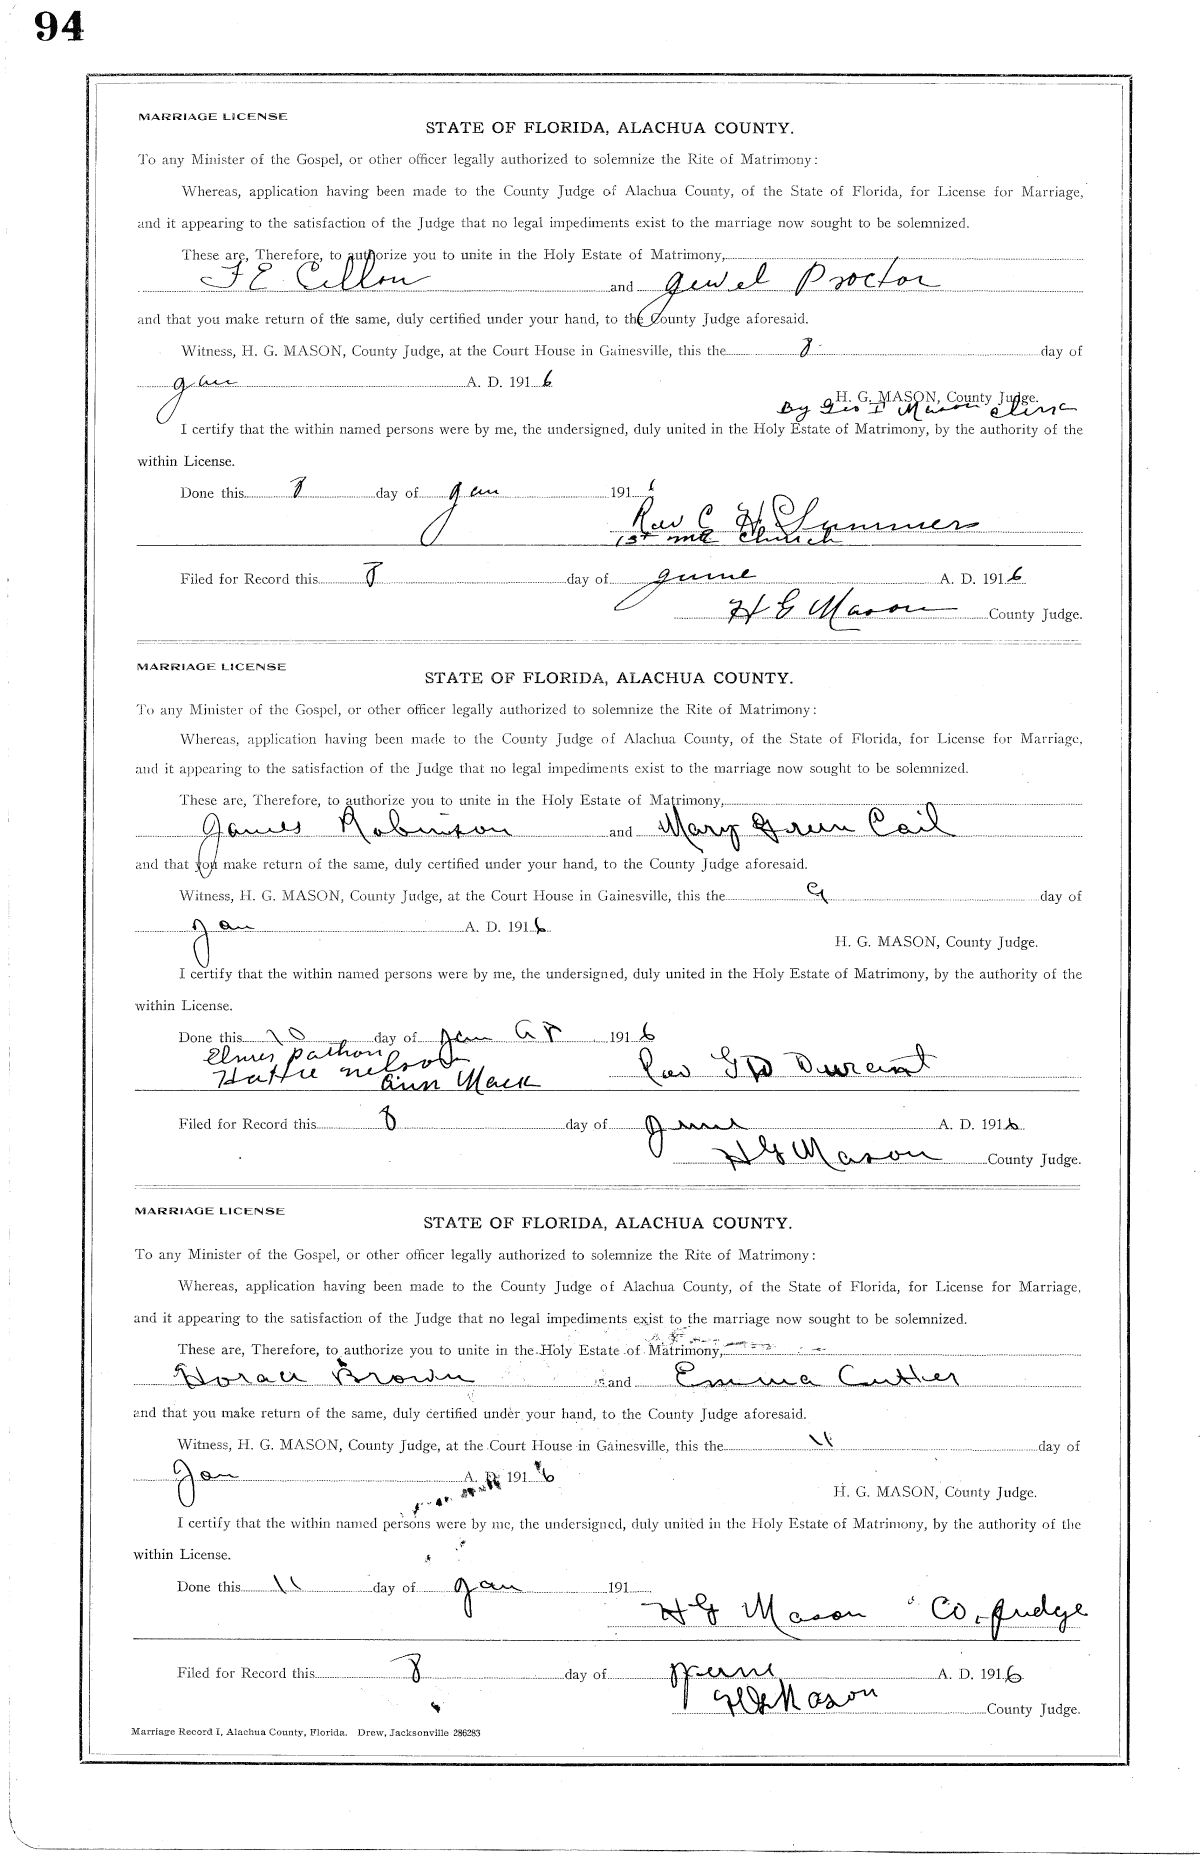 94
MARRIAGE LICENSE
STATE OF FLORIDA, ALACHUA COUNTY.
To any Minister of the Gospel, or other officer legally authorized to solemnize the Rite of Matrimony:
Whereas, application having been made to the County Judge of Alachua County, of the State of Florida, for License for Marriage,
and it appearing to the satisfaction of the Judge that no legal impediments exist to the marriage now sought to be solemnized.
These are, Therefore, to authorize you to unite in the Holy Estate of Matrimony,
F E and Jewel Proctor
and that you make return of the same, duly certified under your hand, to the County Judge aforesaid.
Witness, H. G. MASON, County Judge, at the Court House in Gainesville, this the 8 day of
Jan A. D. 1916
H. G. MASON, County Judge.
By Geo Mason Clerk
I certify that the within named persons were by me, the undersigned, duly united in the Holy Estate of Matrimony, by the authority of the
within License.
Done this 8 day of Jan 1916
Rev C H Summers
1st ME Church
Filed for Record this 8 day of June A. D. 1916
H G Mason County Judge.
MARRIAGE LICENSE
STATE OF FLORIDA, ALACHUA COUNTY.
To any Minister of the Gospel, or other officer legally authorized to solemnize the Rite of Matrimony:
Whereas, application having been made to the County Judge of Alachua County, of the State of Florida, for License for Marriage,
and it appearing to the satisfaction of the Judge that no legal impediments exist to the marriage now sought to be solemnized.
These are, Therefore, to authorize you to unite in the Holy Estate of Matrimony,
James Robinson and Mary Green Cail
and that you make return of the same, duly certified under your hand, to the County Judge aforesaid.
Witness, H. G. MASON, County Judge, at the Court House in Gainesville, this the 9 day of
Jan A. D. 1916
H. G. MASON, County Judge.
I certify that the within named persons were by me, the undersigned, duly united in the Holy Estate of Matrimony, by the authority of the
within License.
Done this 10 day of Jan 1916
Elmer
Hattie Nelson
Ann Mack Rev G D Durant
Filed for Record this 8 day of June A. D. 1916
H G Mason County Judge.
MARRIAGE LICENSE
STATE OF FLORIDA, ALACHUA COUNTY.
To any Minister of the Gospel, or other officer legally authorized to solemnize the Rite of Matrimony:
Whereas, application having been made to the County Judge of Alachua County, of the State of Florida, for License for Marriage,
and it appearing to the satisfaction of the Judge that no legal impediments exist to the marriage now sought to be solemnized.
These are, Therefore, to authorize you to unite in the Holy Estate of Matrimony,
Horace Brown and Emma Cuther
and that you make return of the same, duly certified under your hand, to the County Judge aforesaid.
Witness, H. G. MASON, County Judge, at the Court House in Gainesville, this the 11 day of
Jan A. D. 1916
H. G. MASON, County Judge.
I certify that the within named persons were by me, the undersigned, duly united in the Holy Estate of Matrimony, by the authority of the
within License.
Done this 11 day of Jan 191
H G Mason Co. Judge
Filed for Record this 8 day of June A. D. 1916
H G Mason County Judge.
Marriage Record I, Alachua County, Florida. Drew, Jacksonville 286283